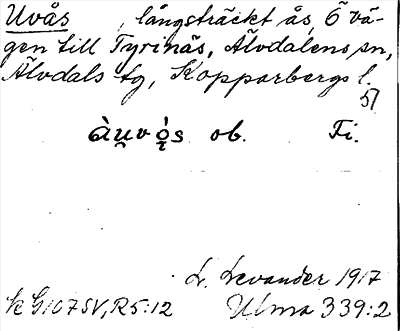 Uvås , långsträckt ås, Ö vä-
gen till Tyrinäs, Älvdalens sn,
Älvdals tg, Kopparbergs l.
51
àu̯vǫ́s ob. Fi.
L. Levander 1917
k G107SV, R5:12 Ulma 339:2